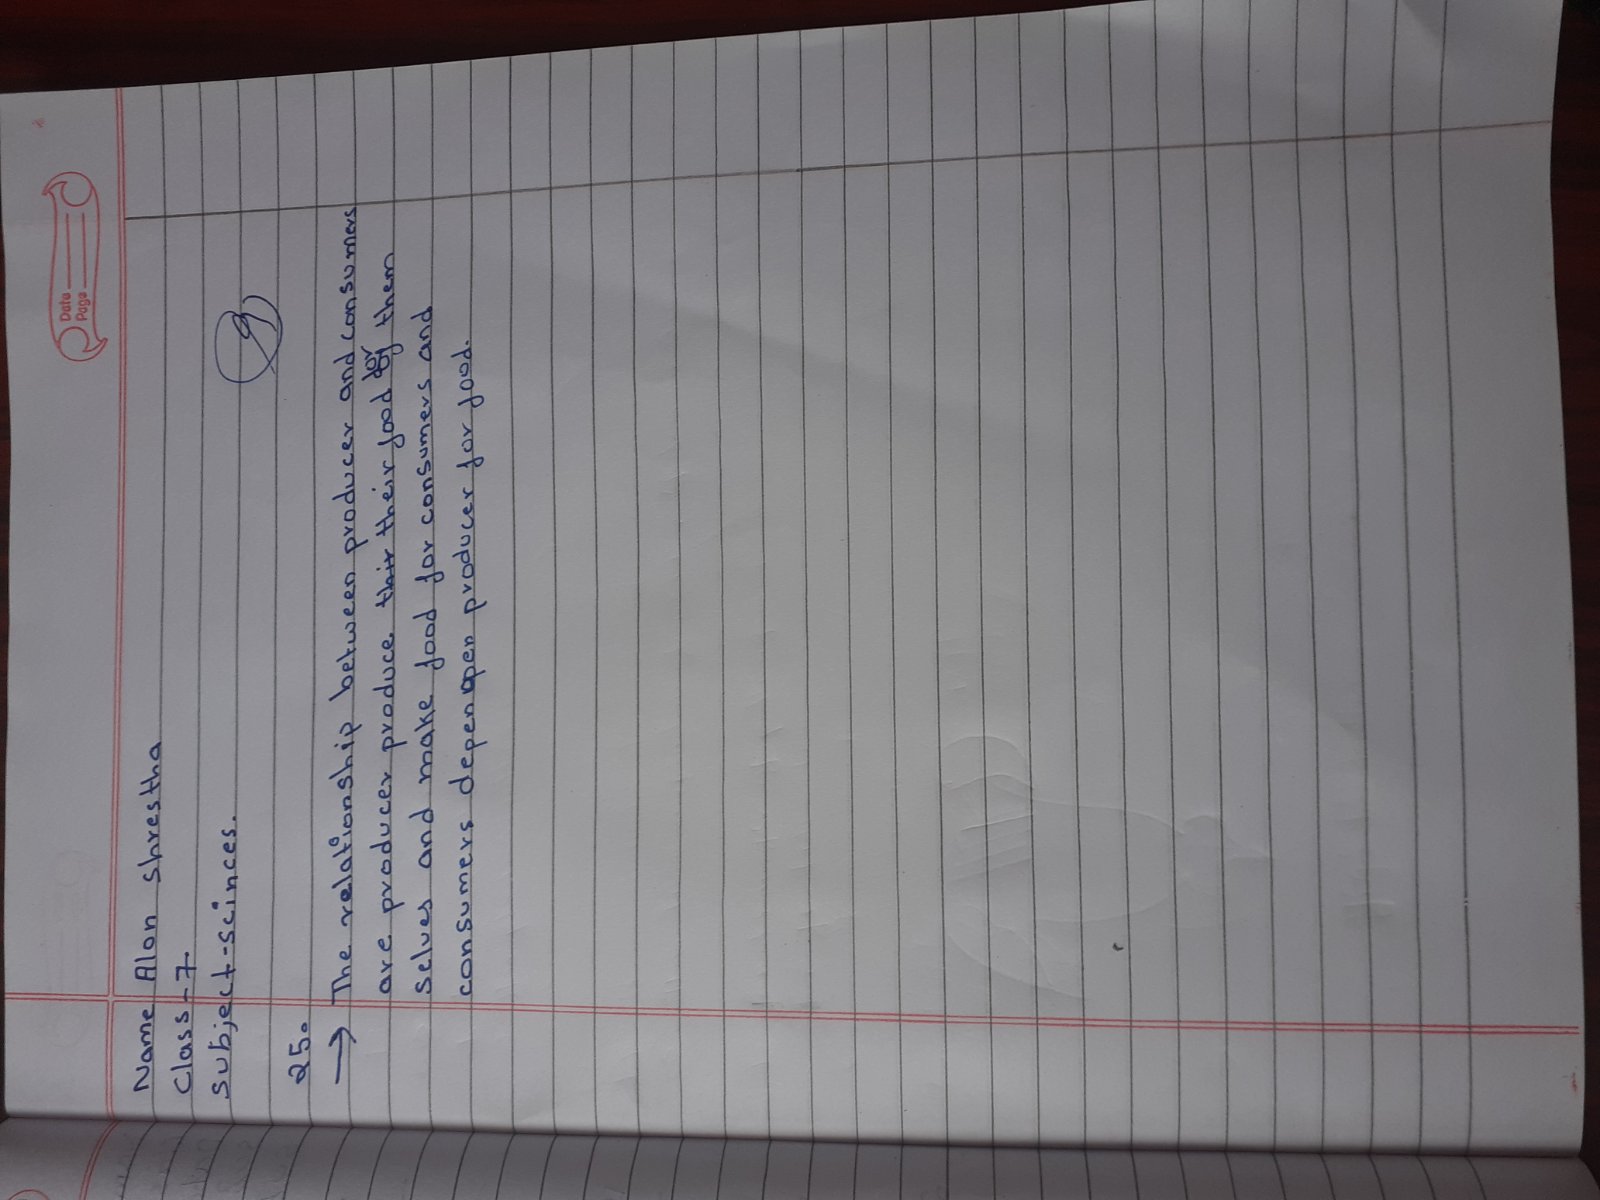 Date
Page
Name Alon Shrestha
Class-7
Subject-scinces.
9
25.
→ The relationship between producer and consumers
are producer produce thir their food for them
selves and make food for consumers and
consumers depen open producer for food.